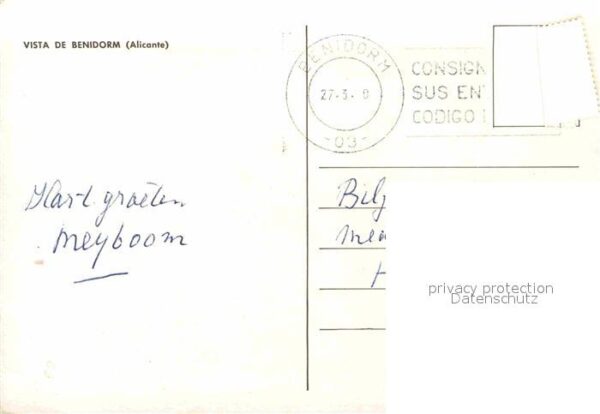 VISTA DE BENIDORM (Alicante)
BENIDORM
27-3-
-03-
CONSIGN
SUS EN
CODIGO
Hart. groeten
Meyboom
privacy protection
Datenschutz